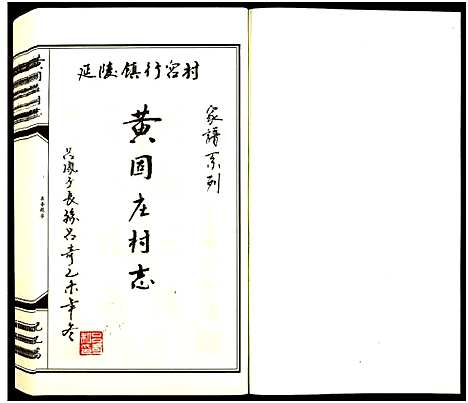 延陵镇行宫村
家谱系列
黄固庄村志
吕凤子长孙吕奇乙未年冬